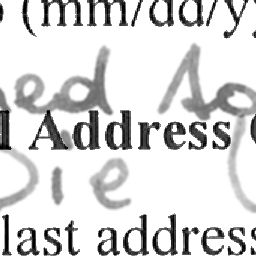 (mm/dd/yy
ned
Address
Die
last address